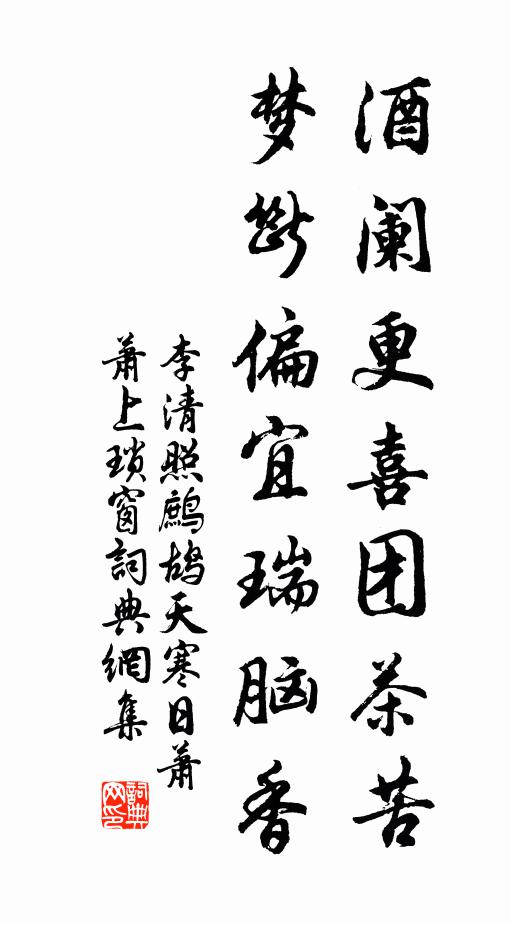 酒阑更喜团茶苦
梦断偏宜瑞脑香
李清照鹧鸪天寒日萧
萧上琐窗词典網集
詞典网印